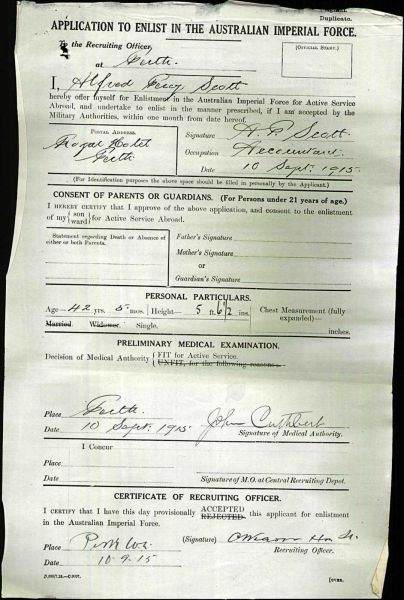 Duplicate.
APPLICATION TO ENLIST IN THE AUSTRALIAN IMPERIAL FORCE.
To the Recruiting Officer,
at Perth.
(OFFICIAL STAMP.)
I, Alfred Percy Scott
hereby offer myself for Enlistment in the Australian Imperial Force for Active Service
Abroad, and undertake to enlist in the manner prescribed, if I am accepted by the
Military Authorities, within one month from date hereof.
POSTAL ADDRESS.
Royal Hotel
Perth
Signature A. P. Scott
Occupation Accountant
Date 10 Sept. 1915.
(For Identification purposes the above space should be filled in personally by the Applicant.)
CONSENT OF PARENTS OR GUARDIANS. (For Persons under 21 years of age.)
I HEREBY CERTIFY that I approve of the above application, and consent to the enlistment
of my {son ward} for Active Service Abroad.
Statement regarding Death or Absence of
either or both Parents.
Father's Signature
Mother's Signature
or
Guardian's Signature
PERSONAL PARTICULARS.
Age—42 yrs. 5 mos. Height— 5 ft. 6½ ins. Chest Measurement (fully
expanded)—
inches.
Married. Widower. Single.
PRELIMINARY MEDICAL EXAMINATION.
Decision of Medical Authority {FIT for Active Service.
UNFIT, for the following reasons—
Place Perth.
Date 10 Sept. 1915
John Cuthbert
Signature of Medical Authority.
I Concur
Place
Date
Signature of M.O. at Central Recruiting Depot.
CERTIFICATE OF RECRUITING OFFICER.
I CERTIFY that I have this day provisionally ACCEPTED
REJECTED this applicant for enlistment
in the Australian Imperial Force.
Place Perth WA.
Date 10-9-15
(Signature)
Recruiting Officer.
[OVER.